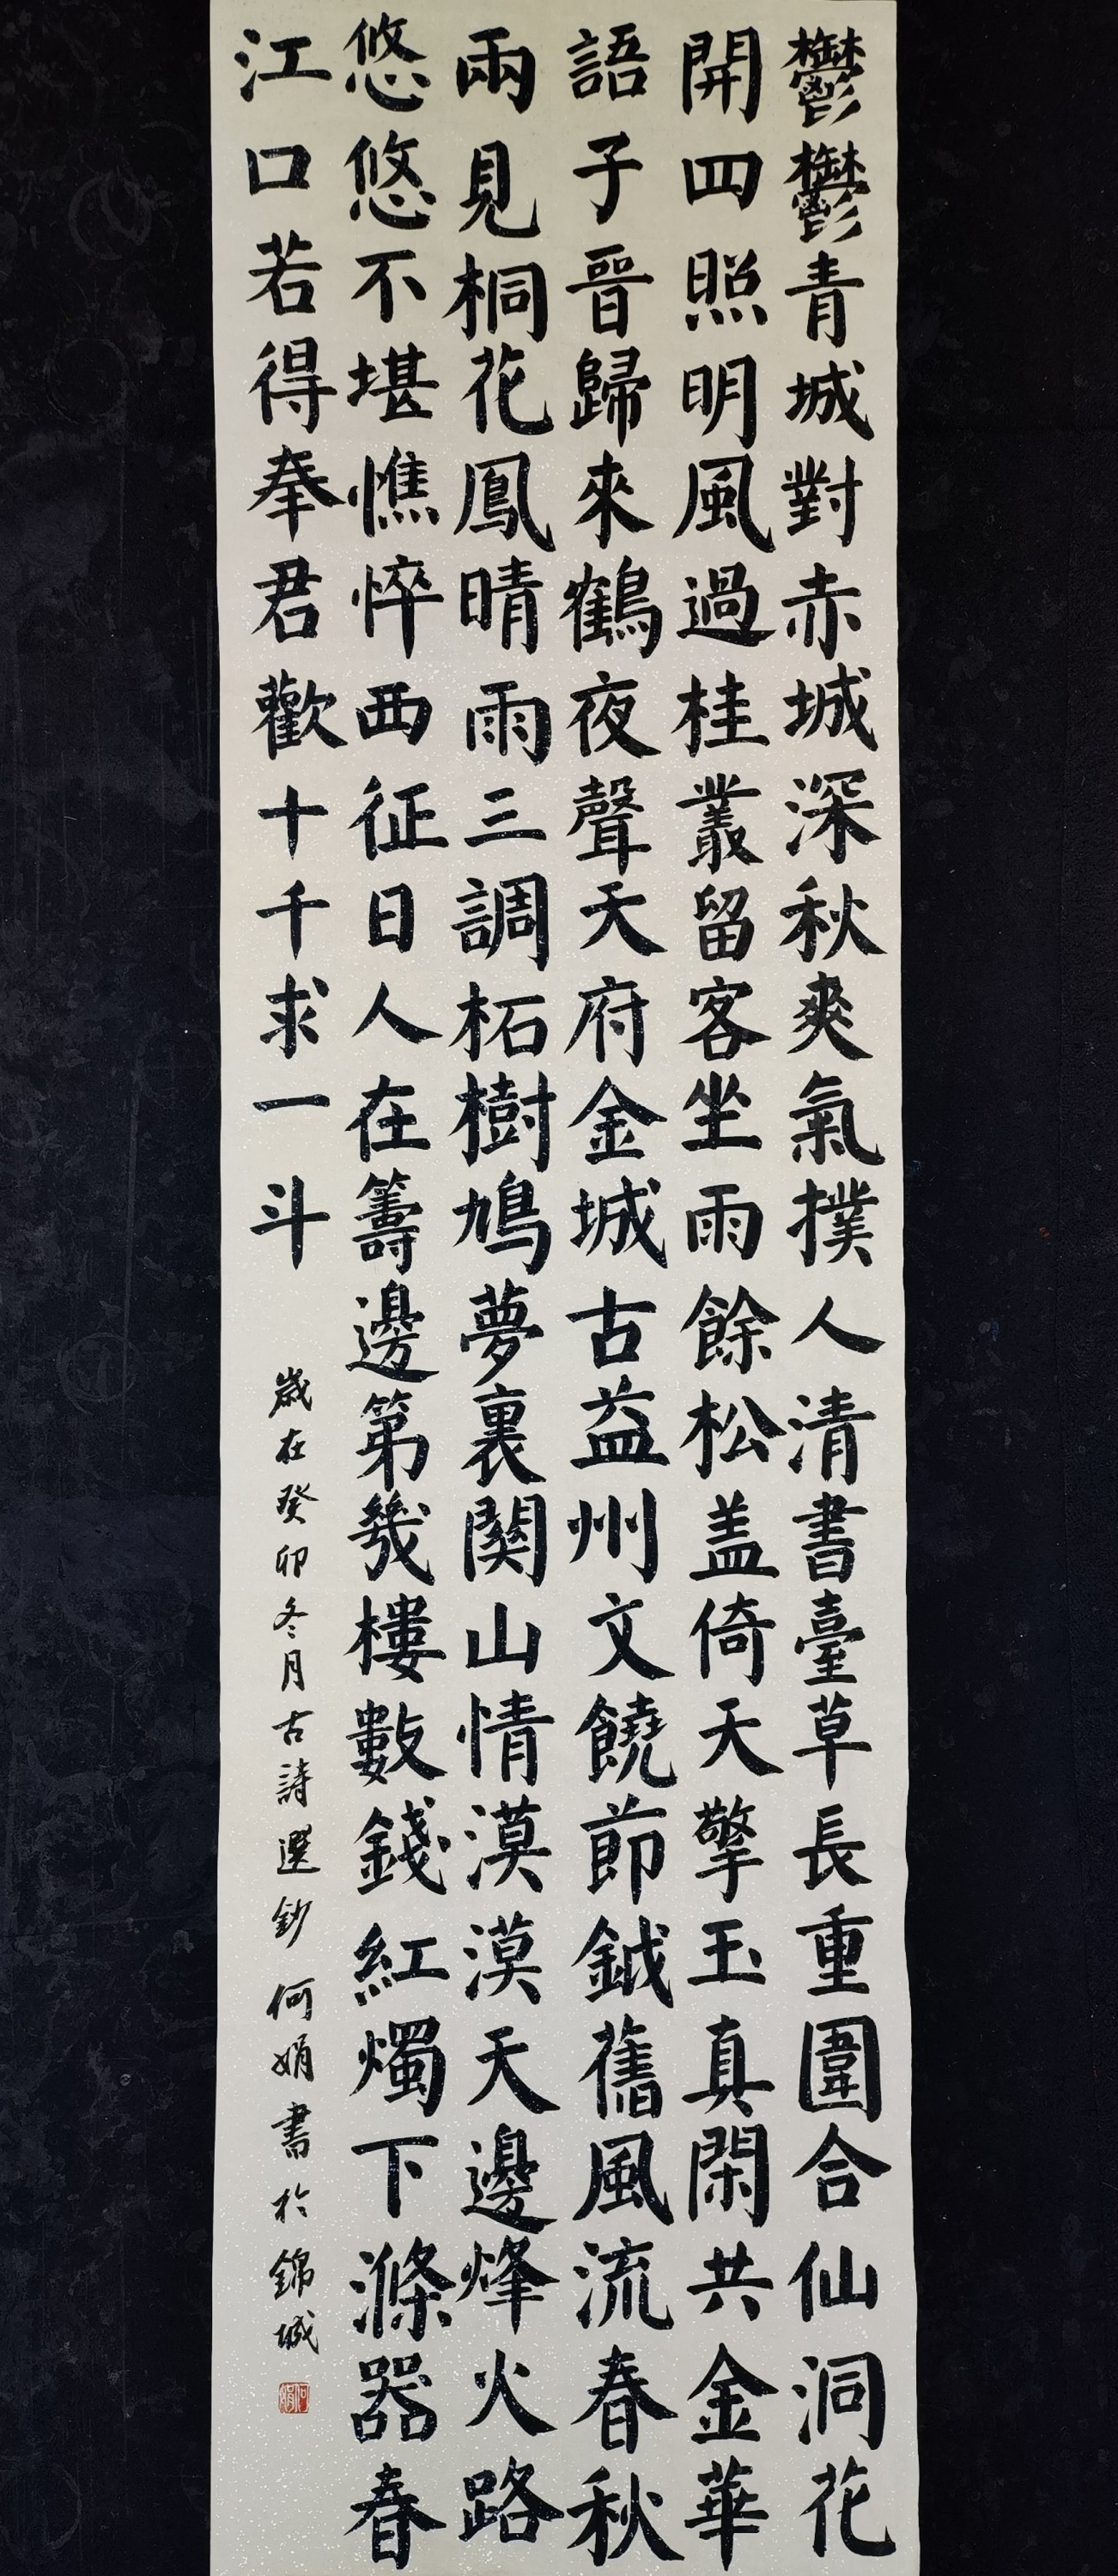 鬱鬱青城對赤城深秋爽氣撲人清書臺草長重圍合仙洞花
開四照明風過桂叢留客坐雨餘松盖倚天擎玉真閑共金華
語子晉歸來鶴夜聲天府金城古益州文饒節鉞舊風流春秋
兩見桐花鳳晴雨三調柘樹鳩夢裏關山情漠漠天邊烽火路
悠悠不堪憔悴西征日人在籌邊第幾樓數錢紅燭下滌器春
江口若得奉君歡十千求一斗
歲在癸卯冬月古詩選鈔何娟書於錦城
何娟